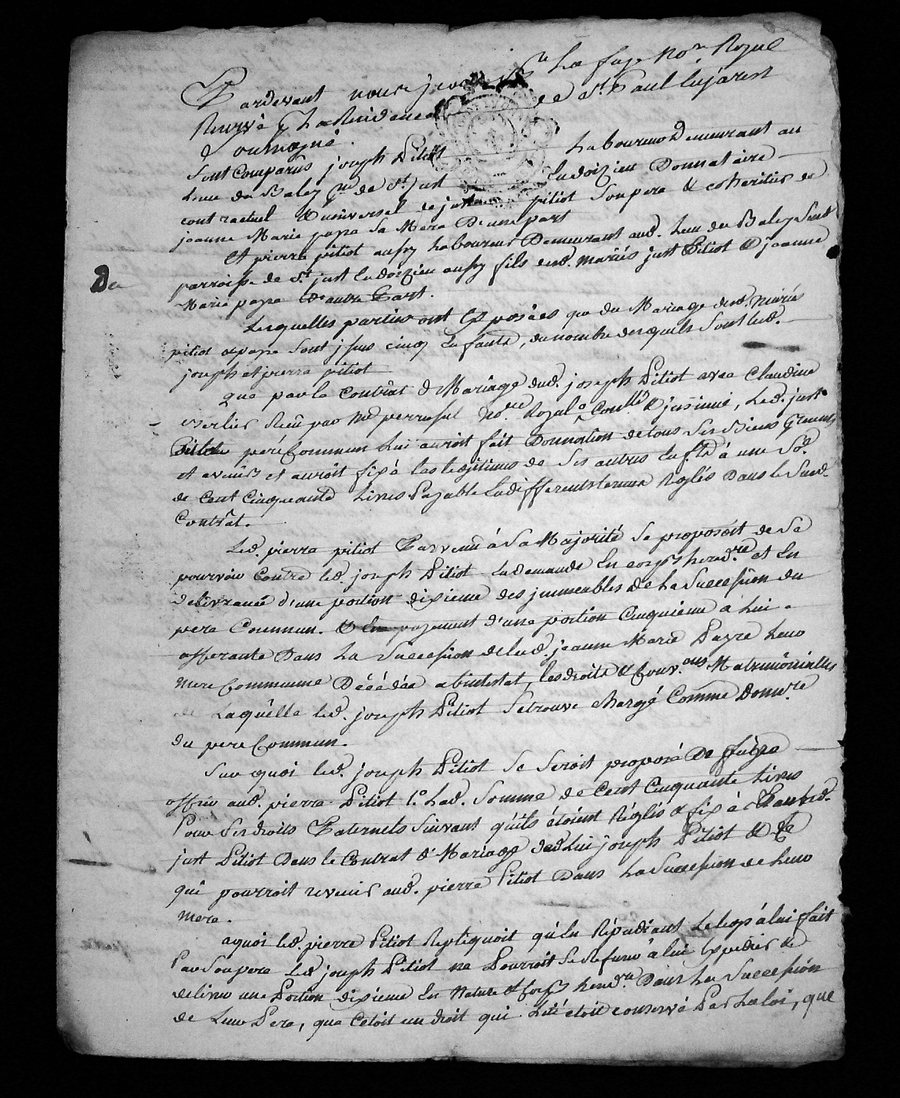 Pardevant nous La faye No.re Royal
Reservé à La Residence de St. Paul en Jarest
Soussigné.
Sont Comparus joseph Pitiot Laboureur Demeurant au
Lieu du Balay de St. just en doizieu Donnataire
contractuel & universel de just pitiot Son pere & cohéritier de
jeanne Marie payre Sa Mere D'une part
Et pierre pitiot aussy Laboureur Demeurant aud. Lieu du Balay Susd.
parroisse de St. just en doizieu aussy fils desd. mariés just Pitiot & jeanne
Marie payre D'autre Part.
Lesquelles parties ont Exposées que du Mariage desd. Mariés
pitiot et payre Sont jssus cinq Enfants, du nombre desquels Sont Led.
joseph et pierre pitiot
que par le Contrat de Mariage dud. joseph Pitiot avec Claudine
verlier Reçu par Me No.re Royal Led. just
Pitiot pere Commun Lui auroit fait Donnation de tous Ses Biens presents
et avenirs et auroit fixé Les legitimes de Ses autres Enfts. à une So.e
de Cent Cinquante Livres Payable En differents termes Reglés Dans le Susd.
Contrat.
Led. pierre pitiot Parvenu à Sa Majorité Se proposoit de Se
pourvoir Contre led. joseph Pitiot En demande En corps hered.re et En
Delivrance d'une portion dixieme des jmmeubles de La Succession du
pere Commun. & En payement d'une portion Cinquieme a Lui
afferante Dans La Succession de lad. jeanne Marie Payre Leur
mere Commune Décédée abintestat, les droits & Matrimôniales
de Laquelle led. joseph Pitiot Se trouve Chargé Comme Donn.re
du pere Commun.
Sur quoi led. joseph Pitiot Se Seroit proposé De
offrir aud. pierre Pitiot 1.o Lad. Somme de Cent Cinquante Livres
Pour Ses droits Paternels Suivant qu'ils étoient Reglés & fixé Par led.
just Pitiot Dans le Contrat de Mariage de Lui joseph Pitiot & Ce
qui pourroit revenir aud. pierre Pitiot Dans La Succession de Leur
mere.
a quoi led. pierre Pitiot Repliquoit qu'En Répudiant Le legs à lui fait
Par Son pere Led. joseph Pitiot ne Pourroit Se Refuser à lui Expedier &
delivrer une Portion dixieme En Nature & Corps hered.re Dans La Succession
de Leur Pere, que C'etoit un droit qui Lui étoit conservé Par La loi, que